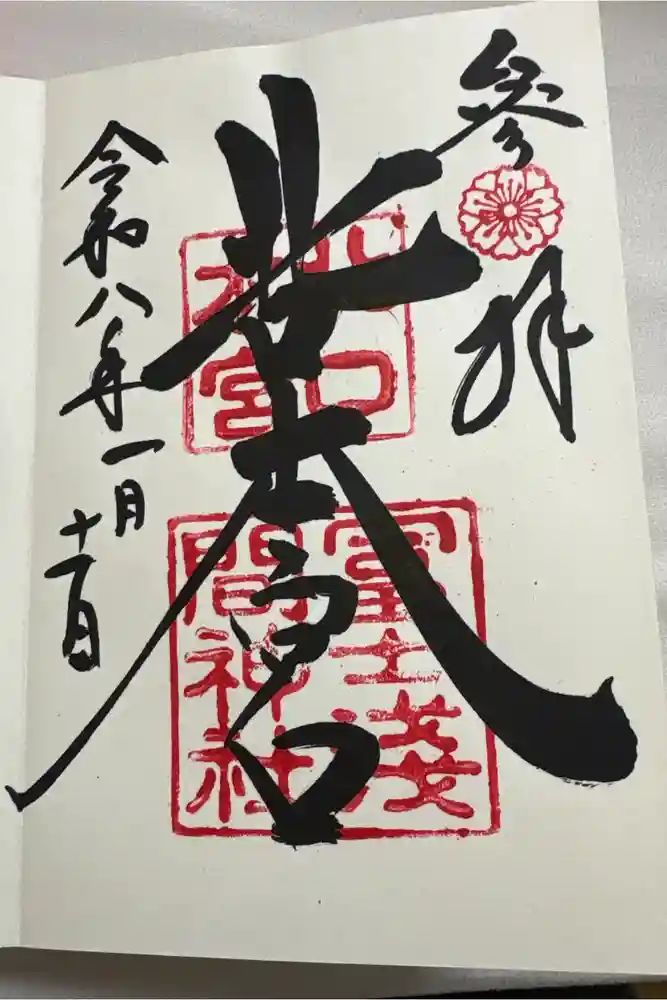 参拝
北口本宮
令和八年一月
十一日
北口
本宮
冨士淺
間神社